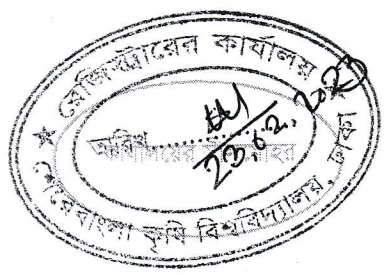 রেজিস্ট্রারের কার্যালয়
তারিখ..............
23.02.2023
শেরেবাংলা কৃষি বিশ্ববিদ্যালয়, ঢাকা